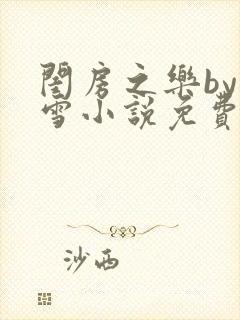 閨房之樂by
雪小說免費
沙西